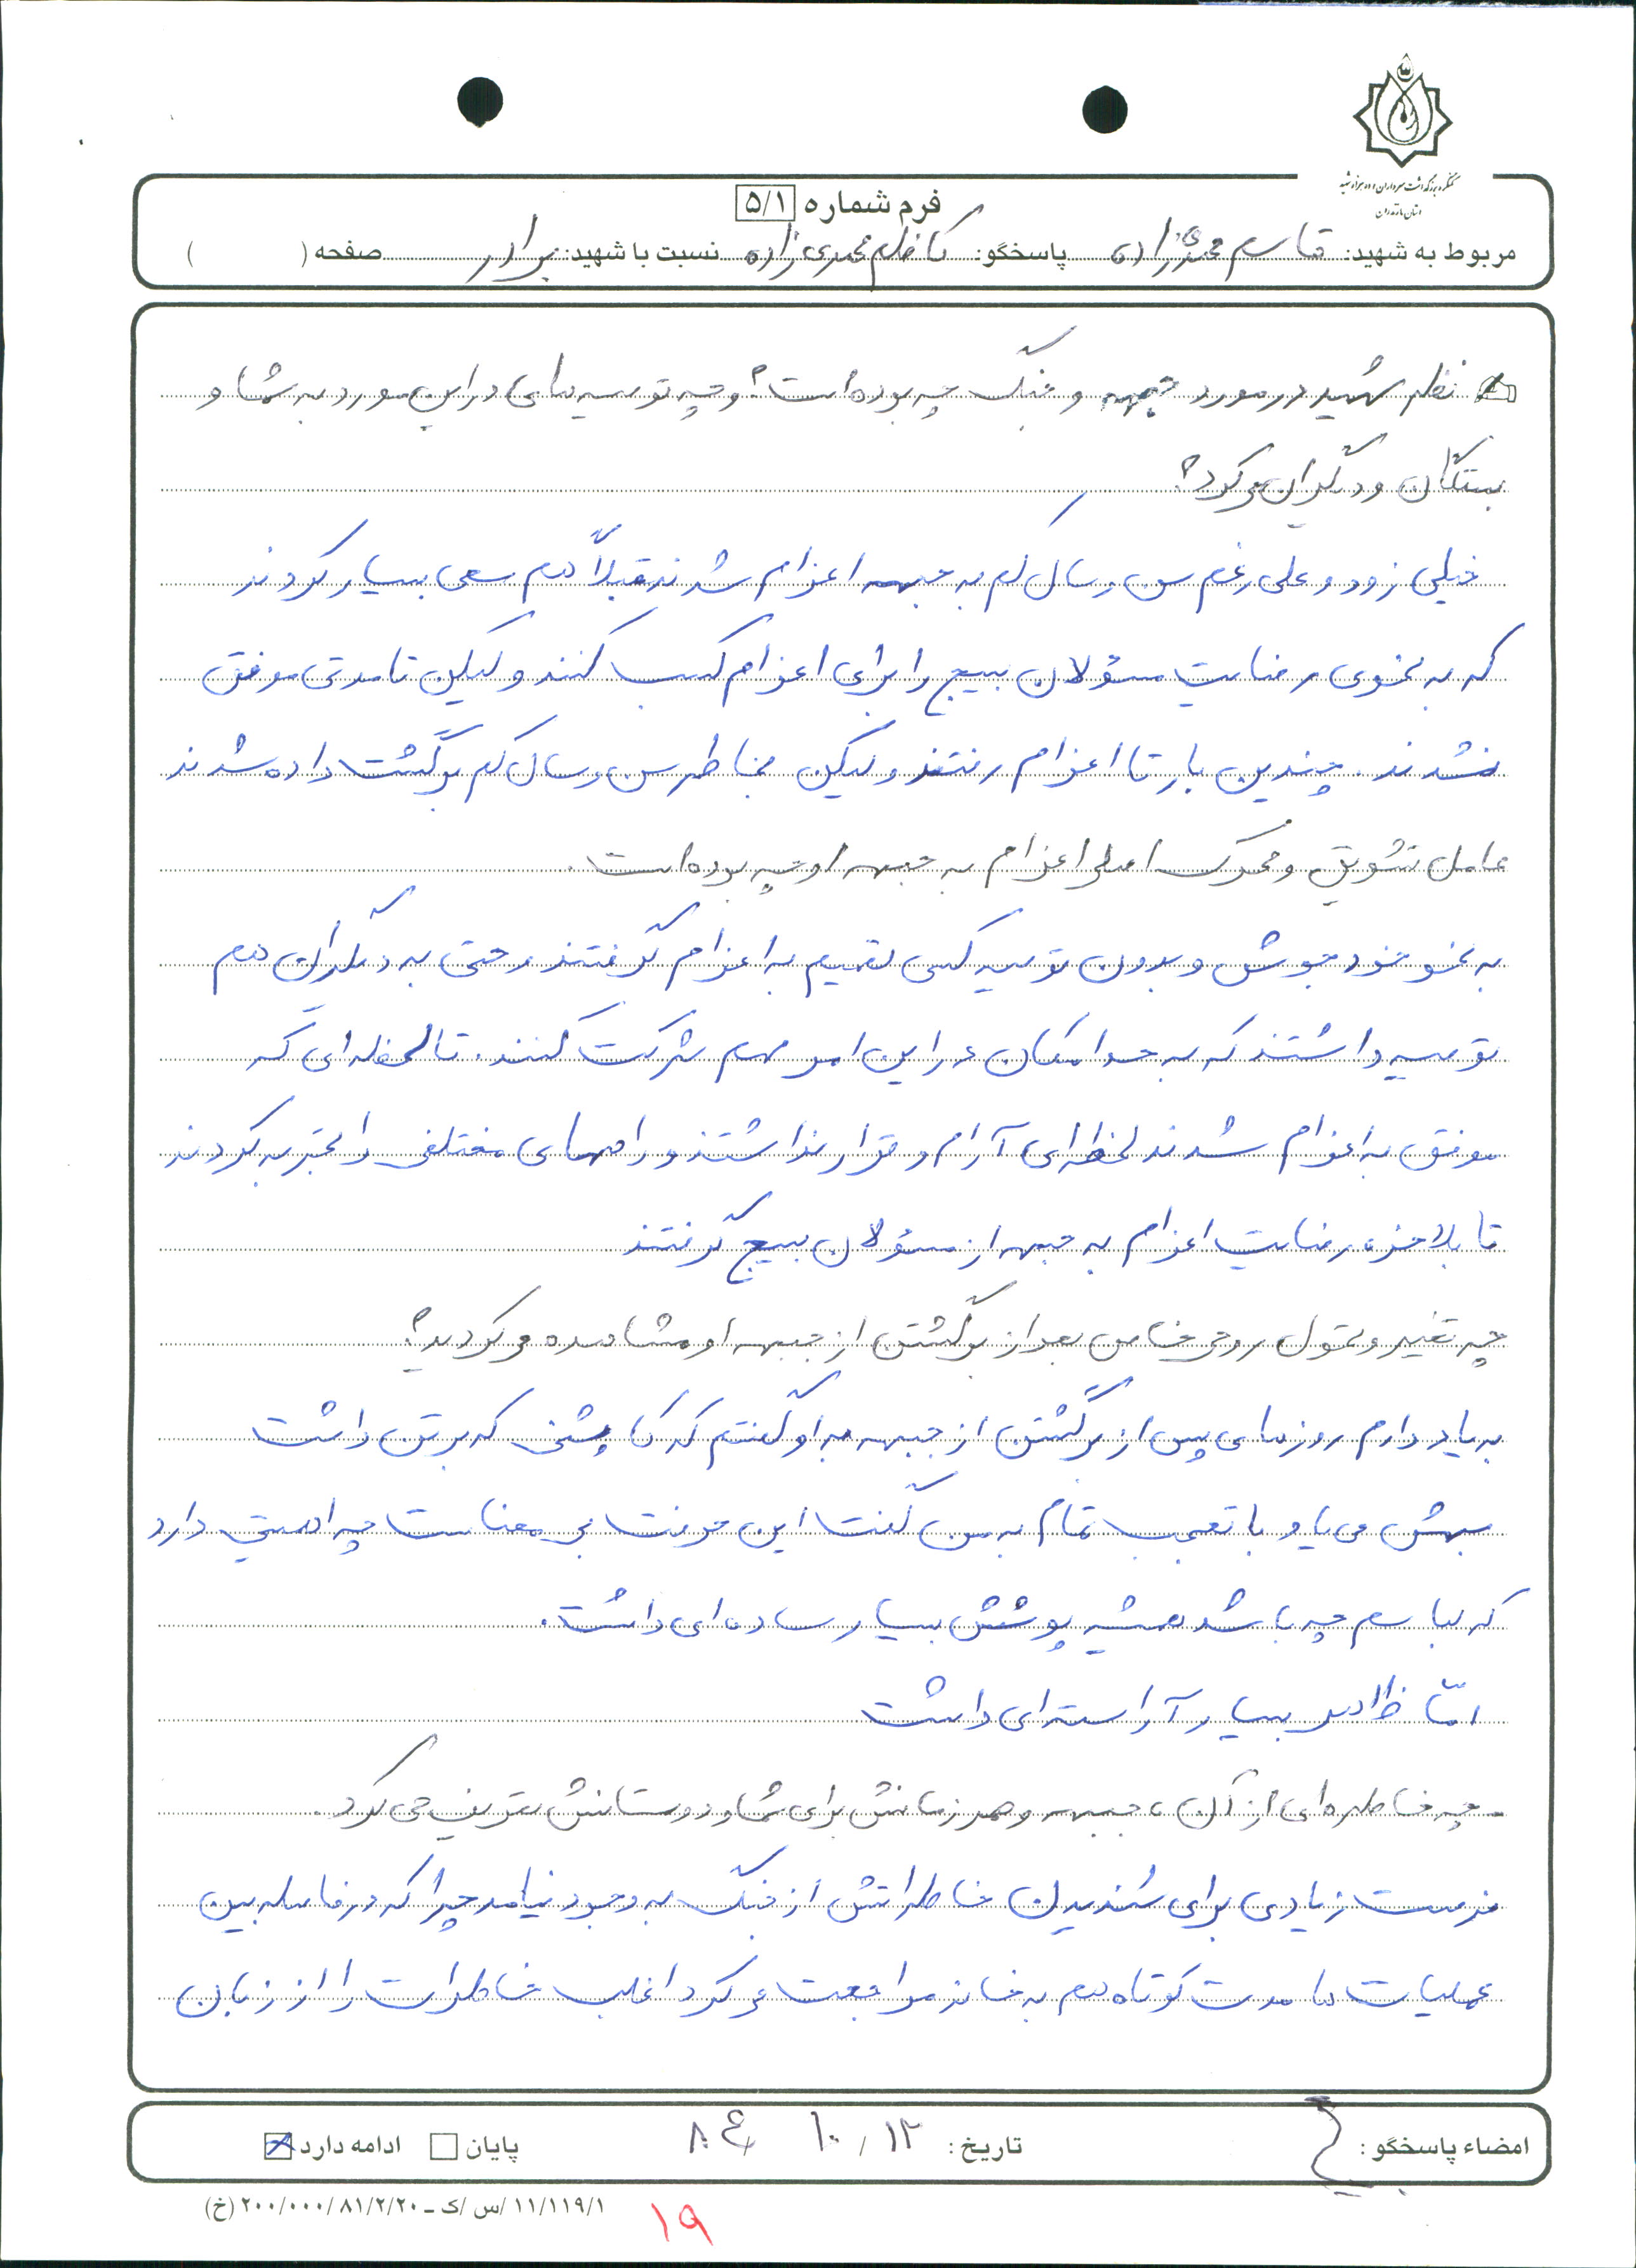 کنگره بزرگداشت سرداران و ده هزار شهید
استان مازندران
فرم شماره ۵/۱
مربوط به شهید: قاسم محمدی زاده پاسخگو: کاظم محمدی زاده نسبت با شهید: برادر صفحه ( )
نظر شهید در مورد جبهه و جنگ چه بوده است؟ و چه توصیه هایی در این مورد به شما و
بستگان و دیگران می کرد؟
خیلی زود و علی رغم سن و سال کم به جبهه اعزام شدند قبلاً هم سعی بسیار کردند
که به نحوی رضایت مسئولان بسیج را برای اعزام کسب کنند ولیکن تا مدتی موفق
نشدند. چندین بار تا اعزام رفتند ولیکن بخاطر سن و سال کم برگشت داده شدند
عامل تشویق و محرک اصلی اعزام به جبهه او چه بوده است.
به نحو خودجوش و بدون توصیه کسی تصمیم به اعزام گرفتند و حتی به دیگران هم
توصیه داشتند که به حد امکان در این امر مهم شرکت کنند. تا لحظه ای که
موفق به اعزام شدند لحظه ای آرام و قرار نداشتند و راههای مختلفی را تجربه کردند
تا بلاخره رضایت اعزام به جبهه از مسئولان بسیج گرفتند
چه تغییر و تحول روحی خاص بعد از برگشتن از جبهه او مشاهده می کردید؟
به یاد دارم روزهای پس از برگشتن از جبهه به او گفتم که کاپشنی که بر تن داشت
بهش می یاد و با تعجب تمام به من گفت این حرفت بی معناست چه اهمیتی دارد
که لباسم چه باشد همیشه پوشش بسیار ساده ای داشت.
امّا ظاهر بسیار آراسته ای داشت
- چه خاطره ای از آن، جبهه و همرزمانش برای شما و دوستانش تعریف می کرد.
فرصت زیادی برای شنیدن خاطراتش از جنگ به وجود نیامد چرا که در فاصله بین
عملیات ها مدت کوتاه هم به خانه مراجعت می کرد اغلب خاطرات را از زبان
امضاء پاسخگو: تاریخ: ۱۲ / ۱۰ ۸۴ پایان ادامه دارد
۱۱/۱۱۹/۱ /س /ک ـ ۲۰۰/۰۰۰/۸۱/۲/۲۰ (خ)
۱۹